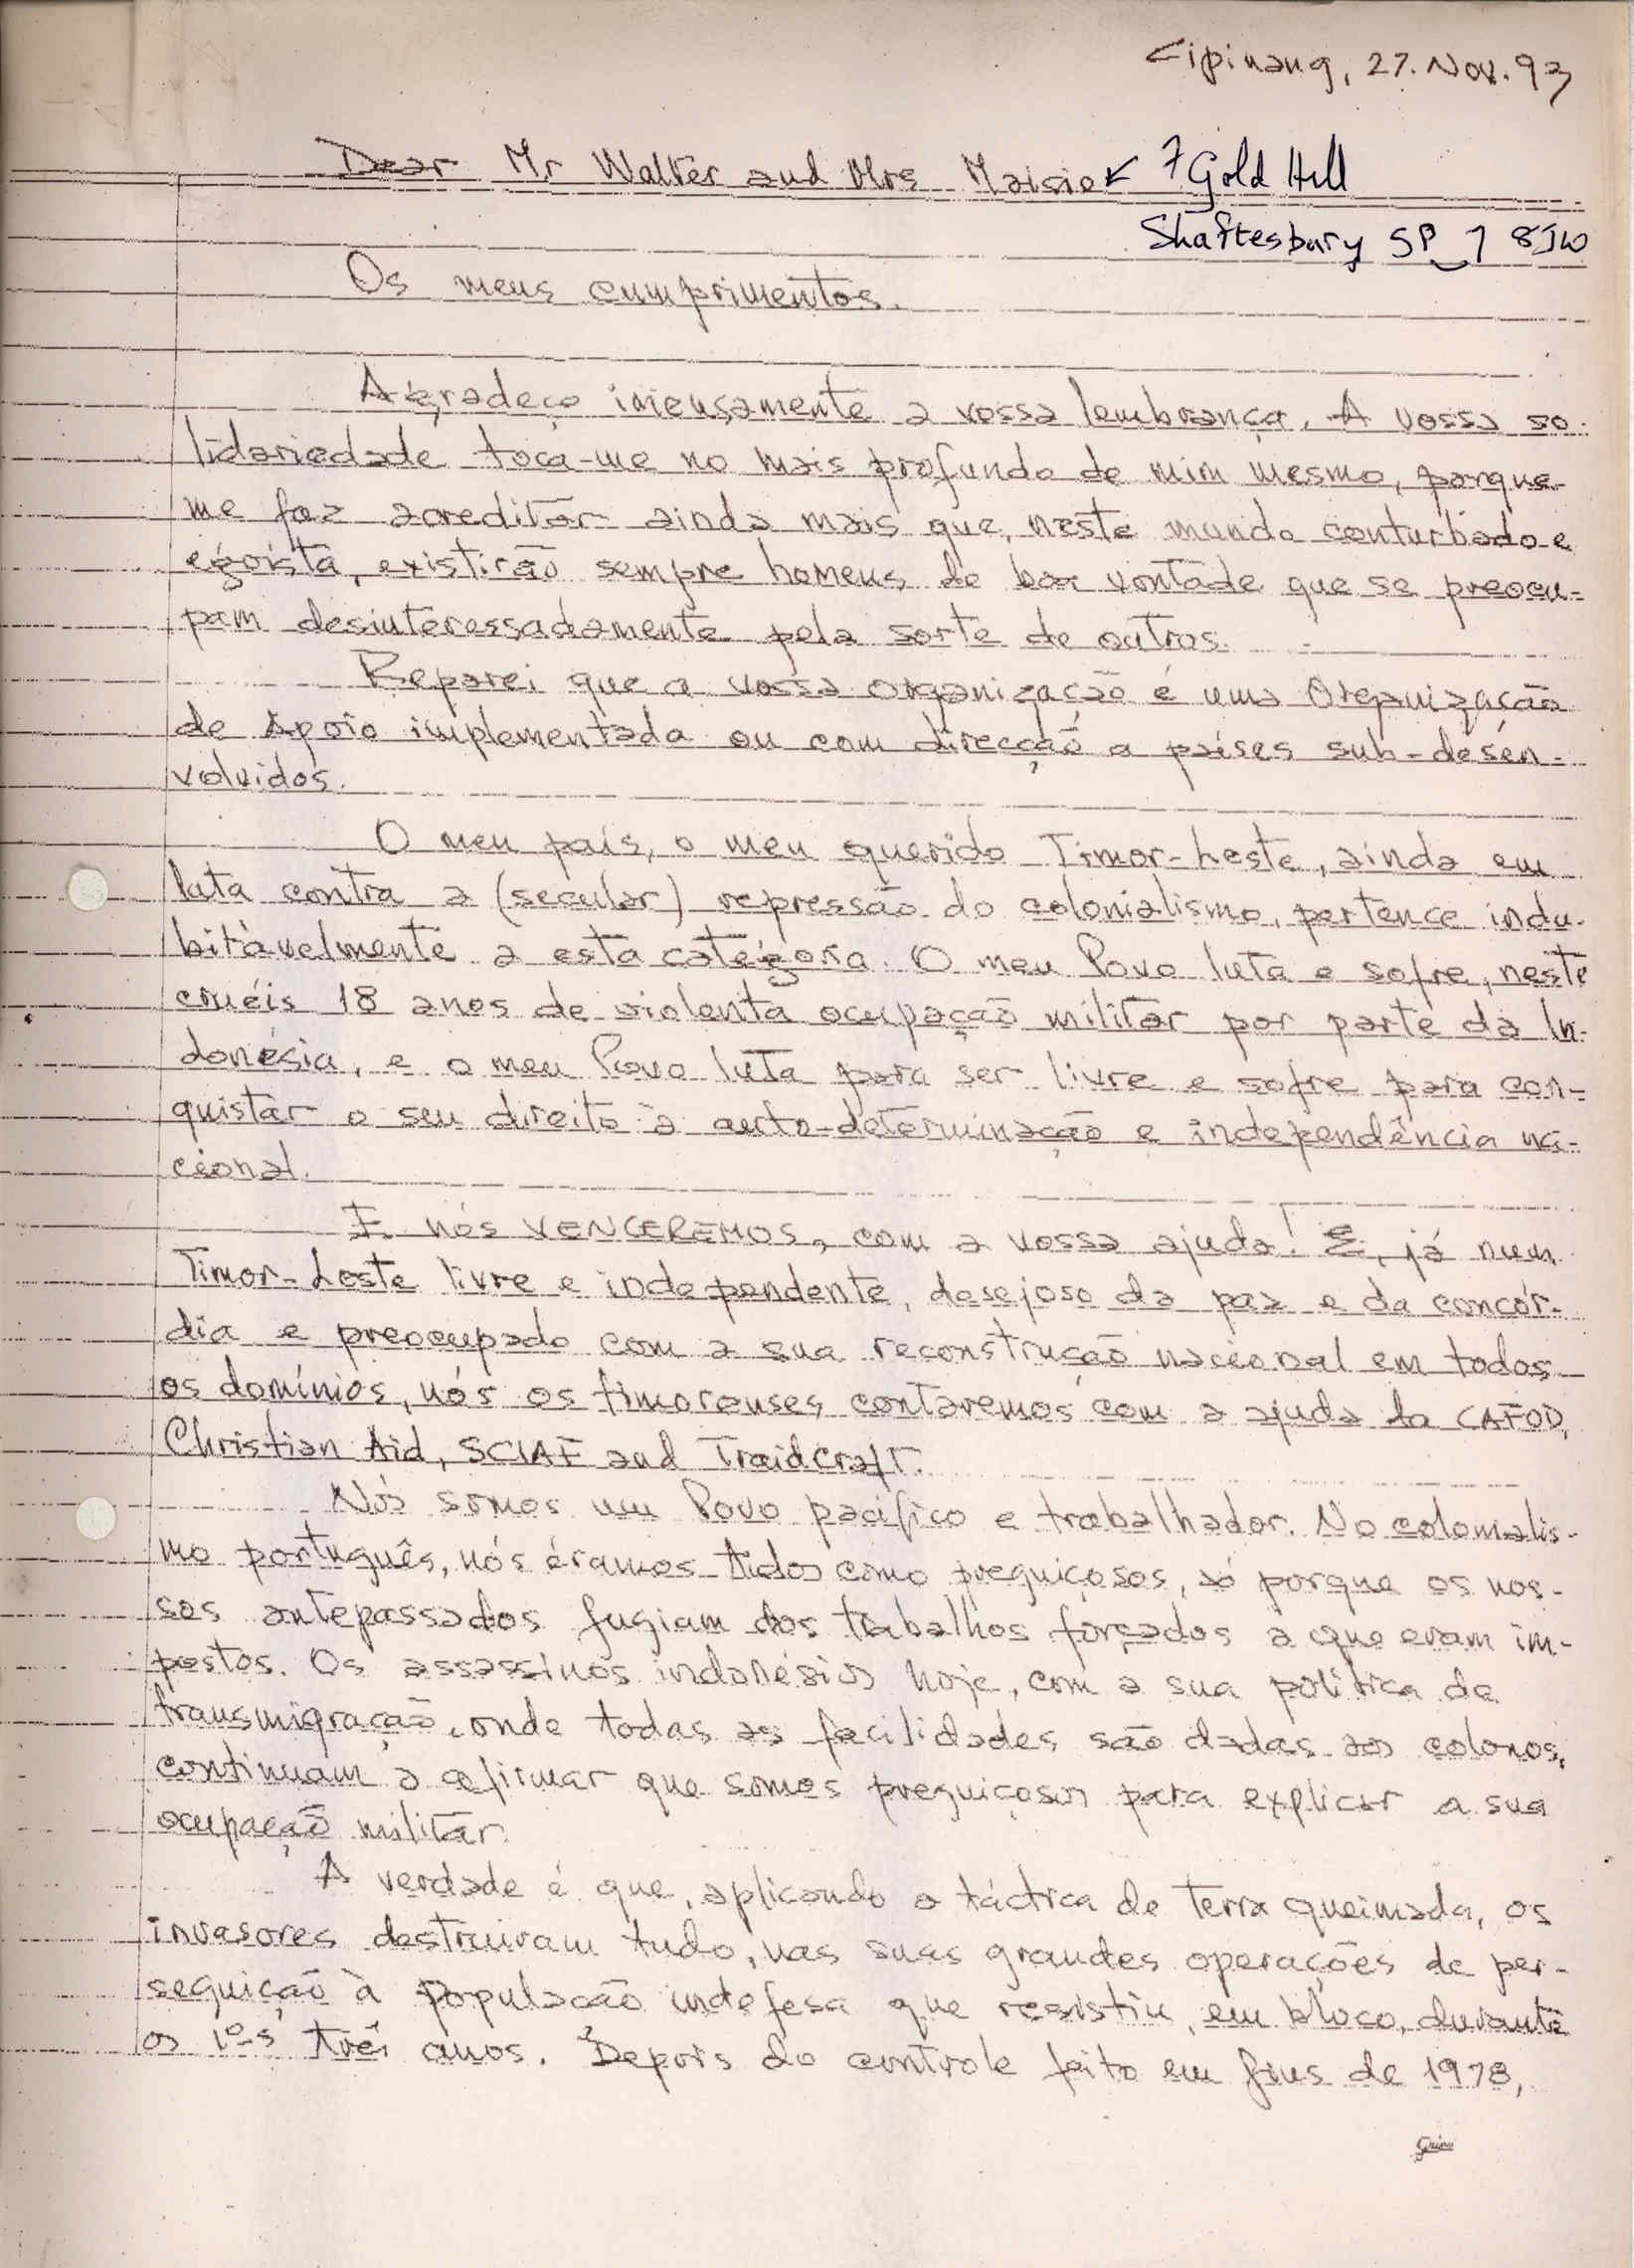 Cipinang, 27. Nov. 93
Dear Mr Walter and Mrs Maisie ← 7 Gold Hill
Shaftesbury SP 7 8JW
Os meus cumprimentos.
Agradeço imensamente a vossa lembrança. A vossa so-
lidariedade toca-me no mais profundo de mim mesmo, porque
me faz acreditar ainda mais que, neste mundo conturbado e
egoísta, existirão sempre homens de boa vontade que se preocu-
pam desinteressadamente pela sorte de outros.
Reparei que a vossa organização é uma Organização
de Apoio implementada ou com direcção a países sub-desen-
volvidos.
O meu país, o meu querido Timor-Leste, ainda em
luta contra a (secular) repressão do colonialismo, pertence indu-
bitàvelmente a esta categoria. O meu Povo luta e sofre, neste
cruéis 18 anos de violenta ocupação militar por parte da In-
donésia, e o meu Povo luta para ser livre e sofre para con-
quistar o seu direito à auto-determinação e independência na-
cional.
E nós VENCEREMOS, com a vossa ajuda! E, já num
Timor-Leste livre e independente, desejoso da paz e da concór-
dia e preocupado com a sua reconstrução nacional em todos
os domínios, nós os timorenses contaremos com a ajuda da CAFOD,
Christian Aid, SCIAF and Traidcraft.
Nós somos um Povo pacífico e trabalhador. No colonialis-
mo português, nós éramos tidos como preguiçosos, só porque os nos-
sos antepassados fugiam dos trabalhos forçados a que eram im-
postos. Os assassinos indonésios hoje, com a sua política de
transmigração, onde todas as facilidades são dadas aos colonos,
continuam a afirmar que somos preguiçosos para explicar a sua
ocupação militar.
A verdade é que, aplicando a táctica de terra queimada, os
invasores destruiram tudo, nas suas grandes operações de per-
seguição à população indefesa que resistiu, em bloco, durante
os 1os três anos. Depois do controle feito em fins de 1978,